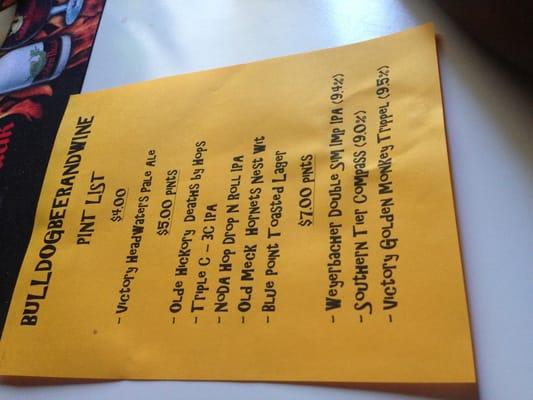 BULLDOGBEERANDWINE
PINT LIST
$4.00
- Victory HeadWaters Pale Ale
$5.00 PINTS
- Olde Hickory Deaths by Hops
- Triple C – 3C IPA
- NODA Hop Drop N Roll IPA
- Old Meck Hornets Nest Wt
- Blue Point Toasted Lager
$7.00 PINTS
- Weyerbacher Double Sim Imp IPA (9.4%)
- Southern Tier Compass (9.0%)
- Victory Golden Monkey Trippel (9.5%)